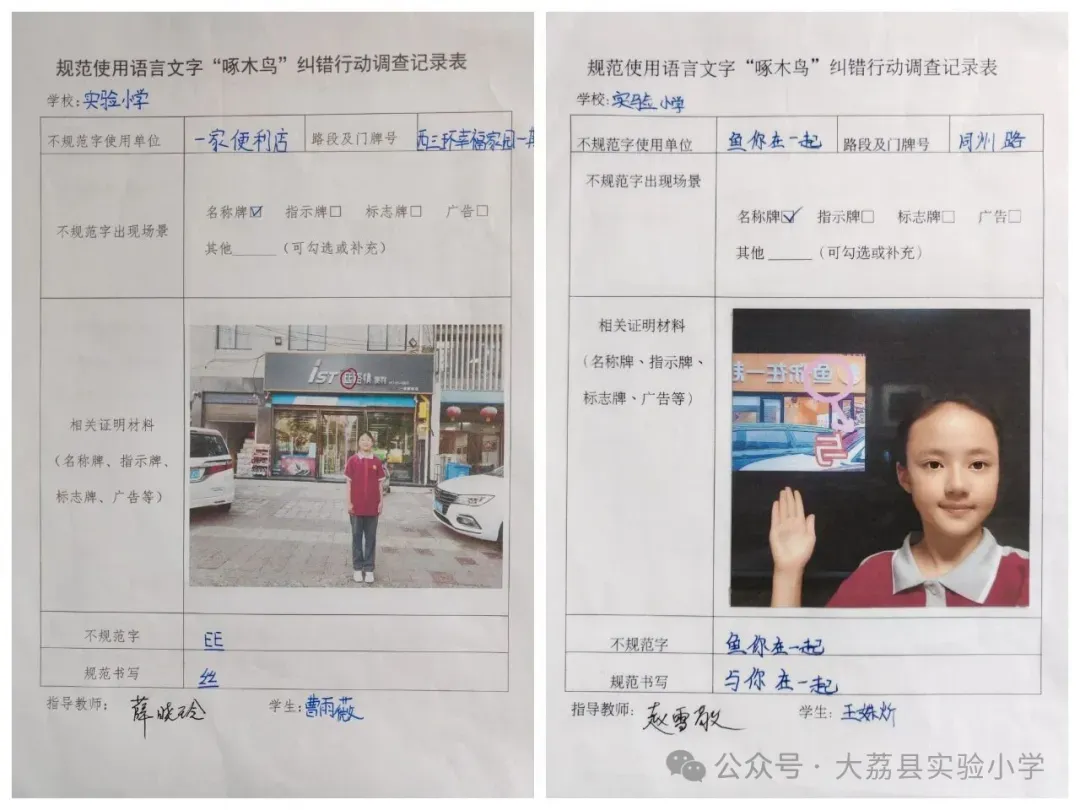 规范使用语言文字“啄木鸟”纠错行动调查记录表
学校:实验小学
不规范字使用单位 一家便利店 路段及门牌号 西三环幸福家园一期
不规范字出现场景
名称牌☑ 指示牌□ 标志牌□ 广告□
其他______(可勾选或补充)
相关证明材料
(名称牌、指示牌、
标志牌、广告等)
iST
不规范字 EE
规范书写 丝
指导教师: 薛晓玲 学生:曹雨薇
规范使用语言文字“啄木鸟”纠错行动调查记录表
学校:实验小学
不规范字使用单位 鱼你在一起 路段及门牌号 同州路
不规范字出现场景
名称牌☑ 指示牌□ 标志牌□ 广告□
其他______(可勾选或补充)
相关证明材料
(名称牌、指示牌、
标志牌、广告等)
鱼你在一起
与
不规范字 鱼你在一起
规范书写 与你在一起
指导教师: 赵雪敏 学生: 王姝炘
公众号·大荔县实验小学